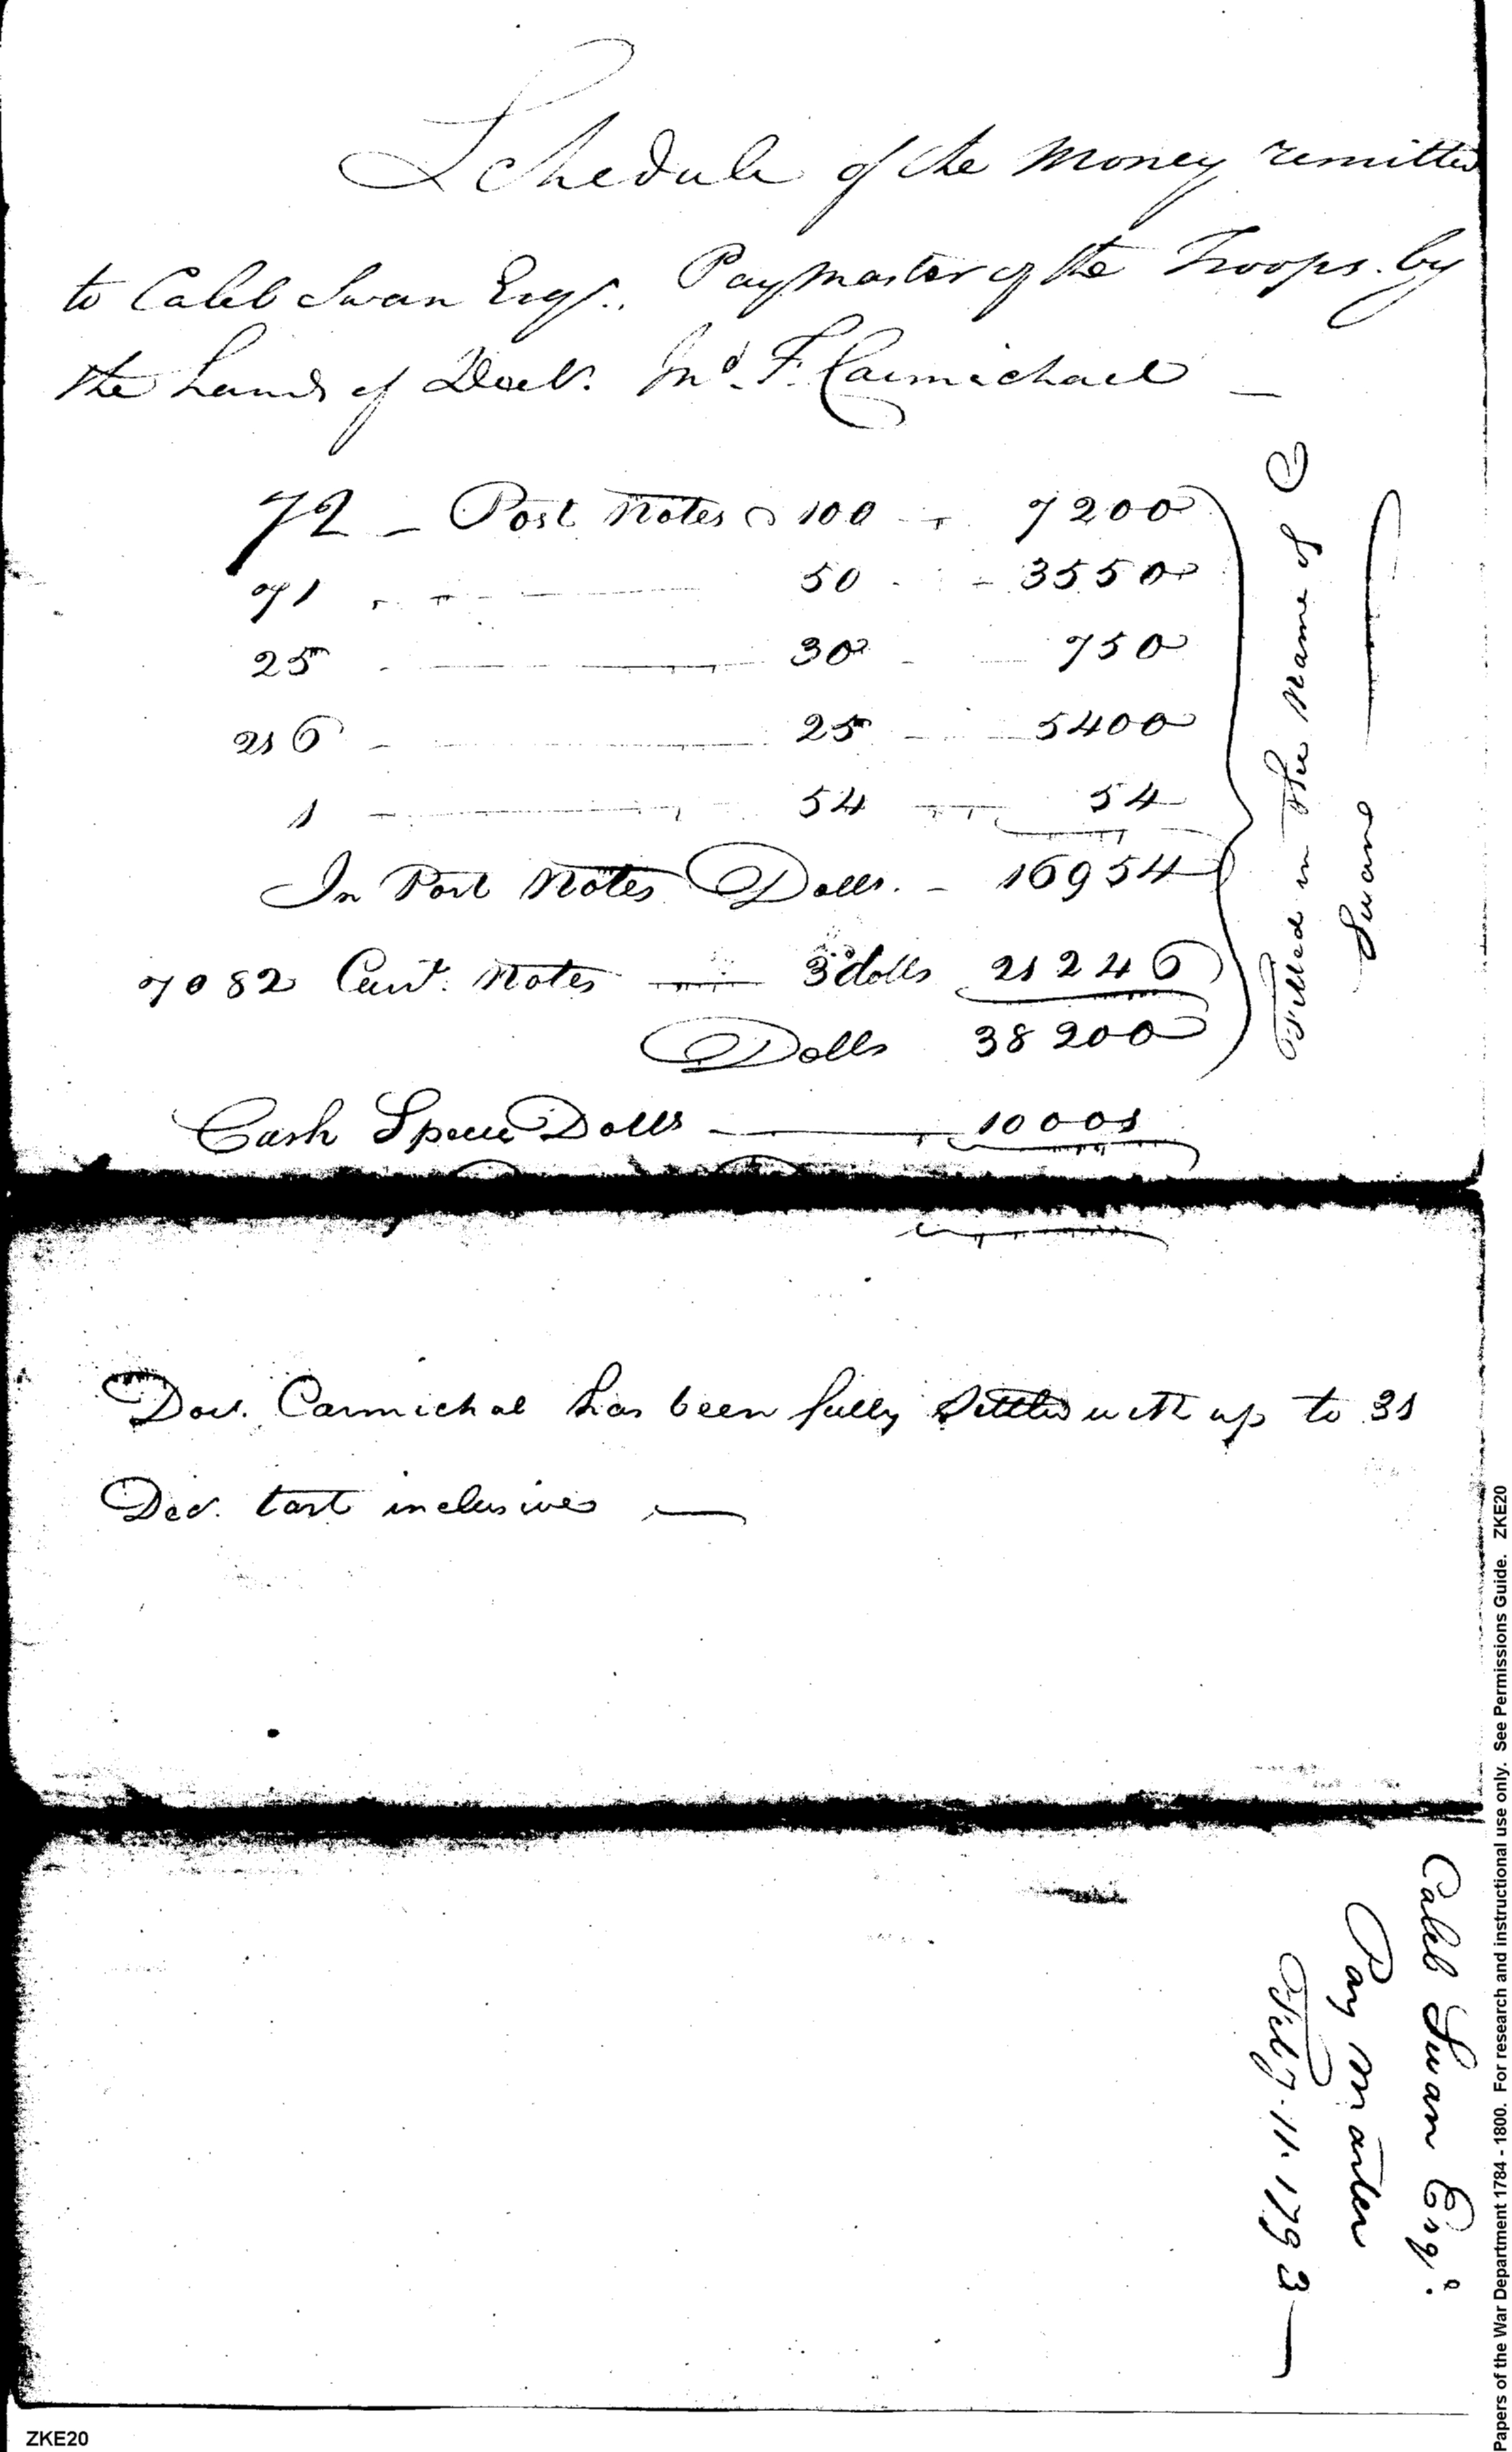 Schedule of the Money remitted
to Caleb Swan Esqr. Paymaster of the Troops. by
the hands of Doctr. Jno. F. Carmichael —
72 — Post Notes @ 100 — 7200
71 — 50 — 3550
25 — 30 — 750
216 — 25 — 5400
1 — 54 — 54
In Post Notes Dolls. — 16954
7082 Cur.t Notes — 3 dolls 21246
Dolls 38200
Filled in the Name of C
Swan
Cash Specie Dolls — 10001
Doct. Carmichal has been fully Settled with up to 31
Decr. last inclusive —
Caleb Swan Esqr.
Pay Master
Feby. 11. 1793 —
ZKE20
Papers of the War Department 1784 - 1800. For research and instructional use only. See Permissions Guide. ZKE20